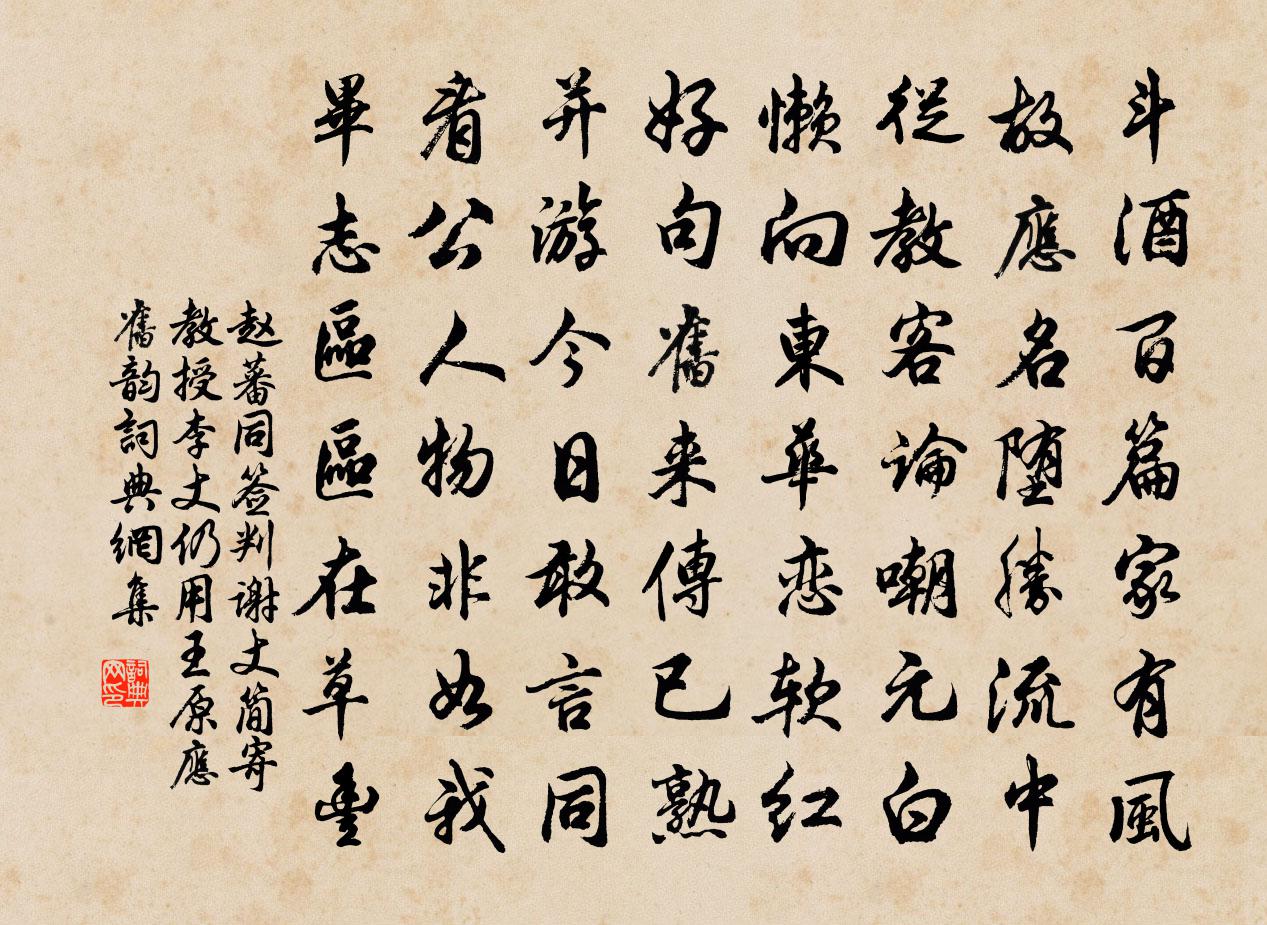 斗酒百篇家有風
故應名堕勝流中
從教客論嘲元白
懶向東華恋软红
好句舊来傳已熟
并游今日敢言同
看公人物非如我
畢志區區在草豐
赵蕃同签判谢丈简寄
教授李丈仍用王原應
舊韵詞典網集
詞典网印